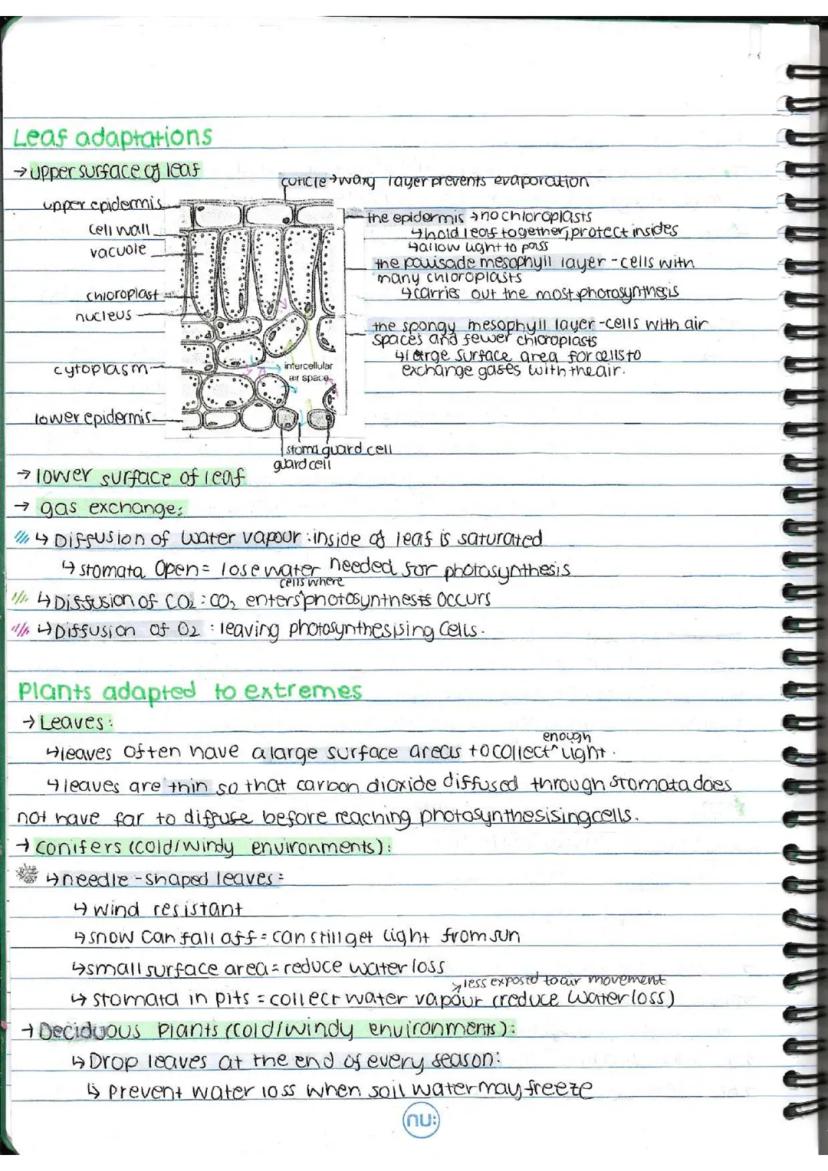 Leaf adaptations
→ upper surface of leaf
cuticle → waxy layer prevents evaporation
upper epidermis
cell wall
vacuole
chloroplast
nucleus
cytoplasm
lower epidermis
the epidermis → no chloroplasts
↳ hold leaf together, protect insides
↳ allow light to pass
the palisade mesophyll layer - cells with
many chloroplasts
↳ carries out the most photosynthesis
the spongy mesophyll layer - cells with air
spaces and fewer chloroplasts
↳ large surface area for cells to
exchange gases with the air.
intercellular
air space
stoma guard cell
guard cell
→ lower surface of leaf
→ gas exchange:
↳ Diffusion of water vapour : inside of leaf is saturated
↳ stomata open = lose water needed for photosynthesis
cells where
↳ Diffusion of CO2 : CO2 enters ^ photosynthests occurs
↳ Diffusion of O2 : leaving photosynthesising cells.
Plants adapted to extremes
→ Leaves:
enough
↳ leaves often have a large surface areas to collect ^ light.
↳ leaves are thin so that carbon dioxide diffused through stomata does
not have far to diffuse before reaching photosynthesising cells.
→ conifers (cold/windy environments):
↳ needle-shaped leaves:
↳ wind resistant
↳ snow can fall off = can still get light from sun
↳ small surface area = reduce water loss
↳ less exposed to air movement
↳ stomata in pits = collect water vapour (reduce water loss)
→ Deciduous Plants (cold/windy environments):
↳ Drop leaves at the end of every season:
↳ prevent water loss when soil water may freeze
nu: